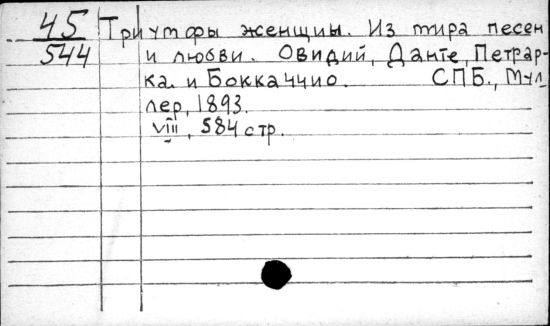 45
544
Триумфы женщины. Из мира песен
и любви. Овидий, Данте, Петрар-
ка и Боккаччио. СПБ., Мул
лер, 1893.
VIII, 584 стр.